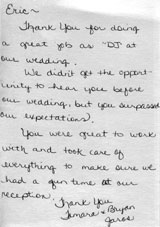 Eric~
Thank You for doing
a great job as "DJ at
our wedding.
We didn't get the opport-
unity to hear you before
our wedding, but you surpassed
our expectations).
You were great to work
with and took care of
everything to make sure we
had a fun time at our
reception.
Thank You
Tamara & Bryan